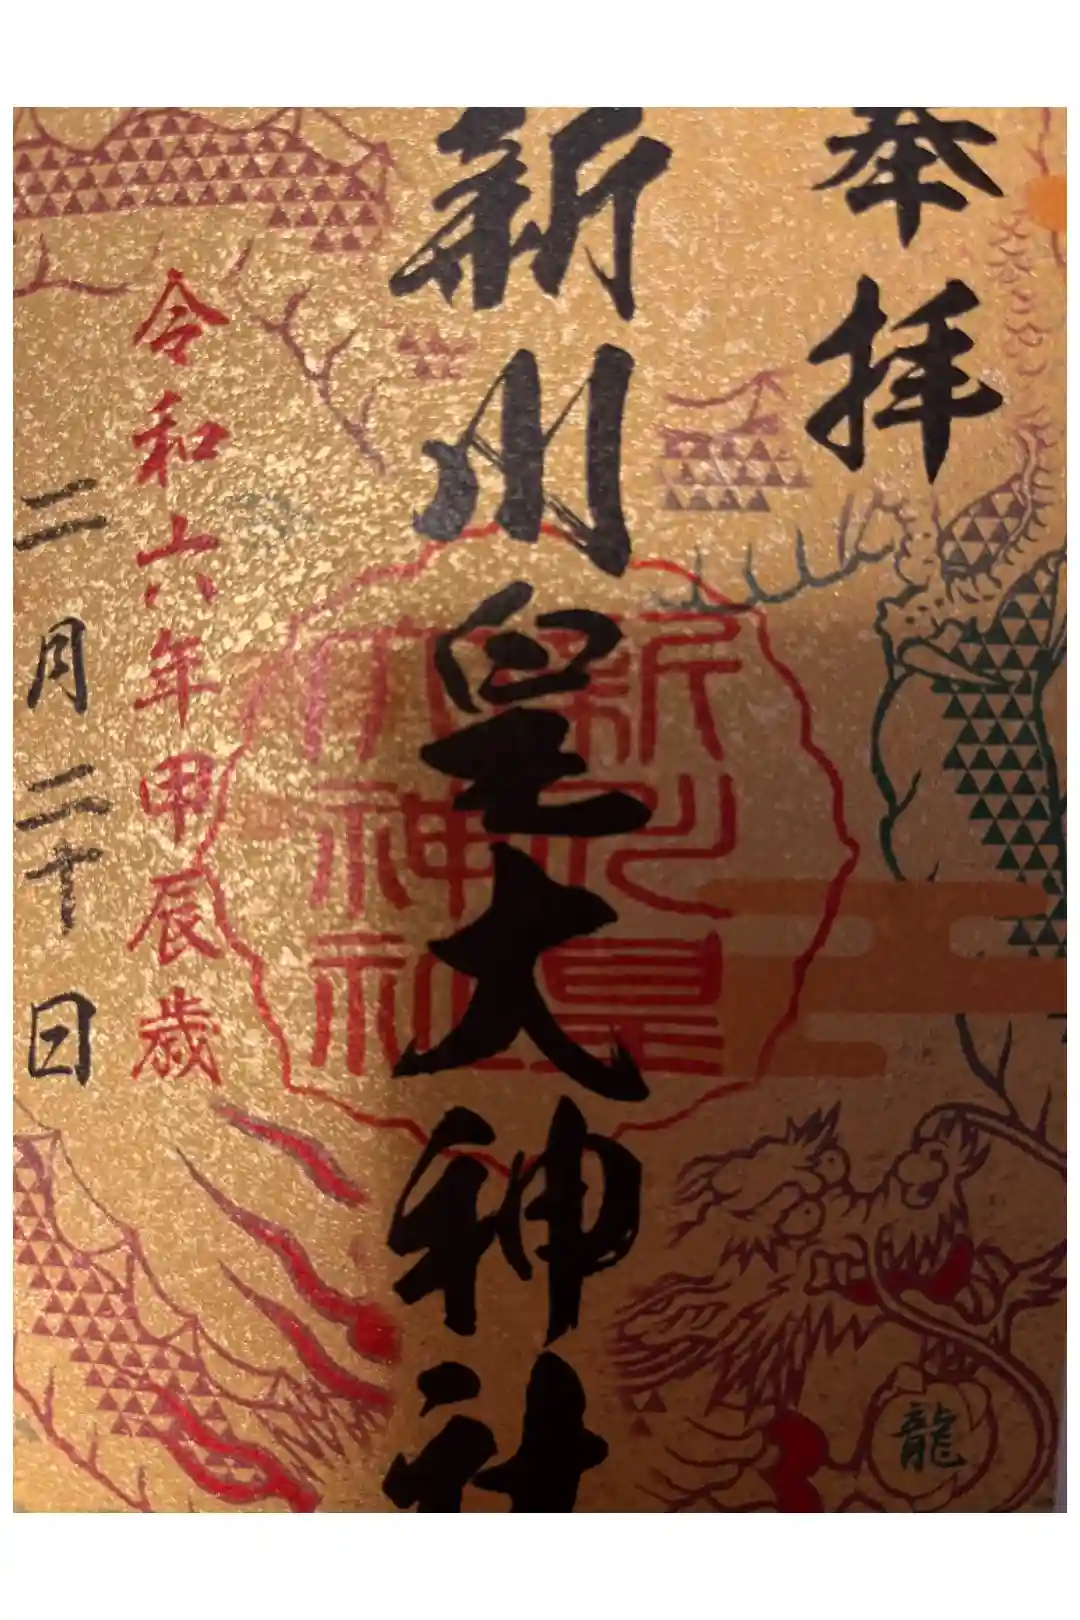 奉拝
新川皇大神社
新川皇
大神社
令和六年甲辰歳
二月二十日
龍